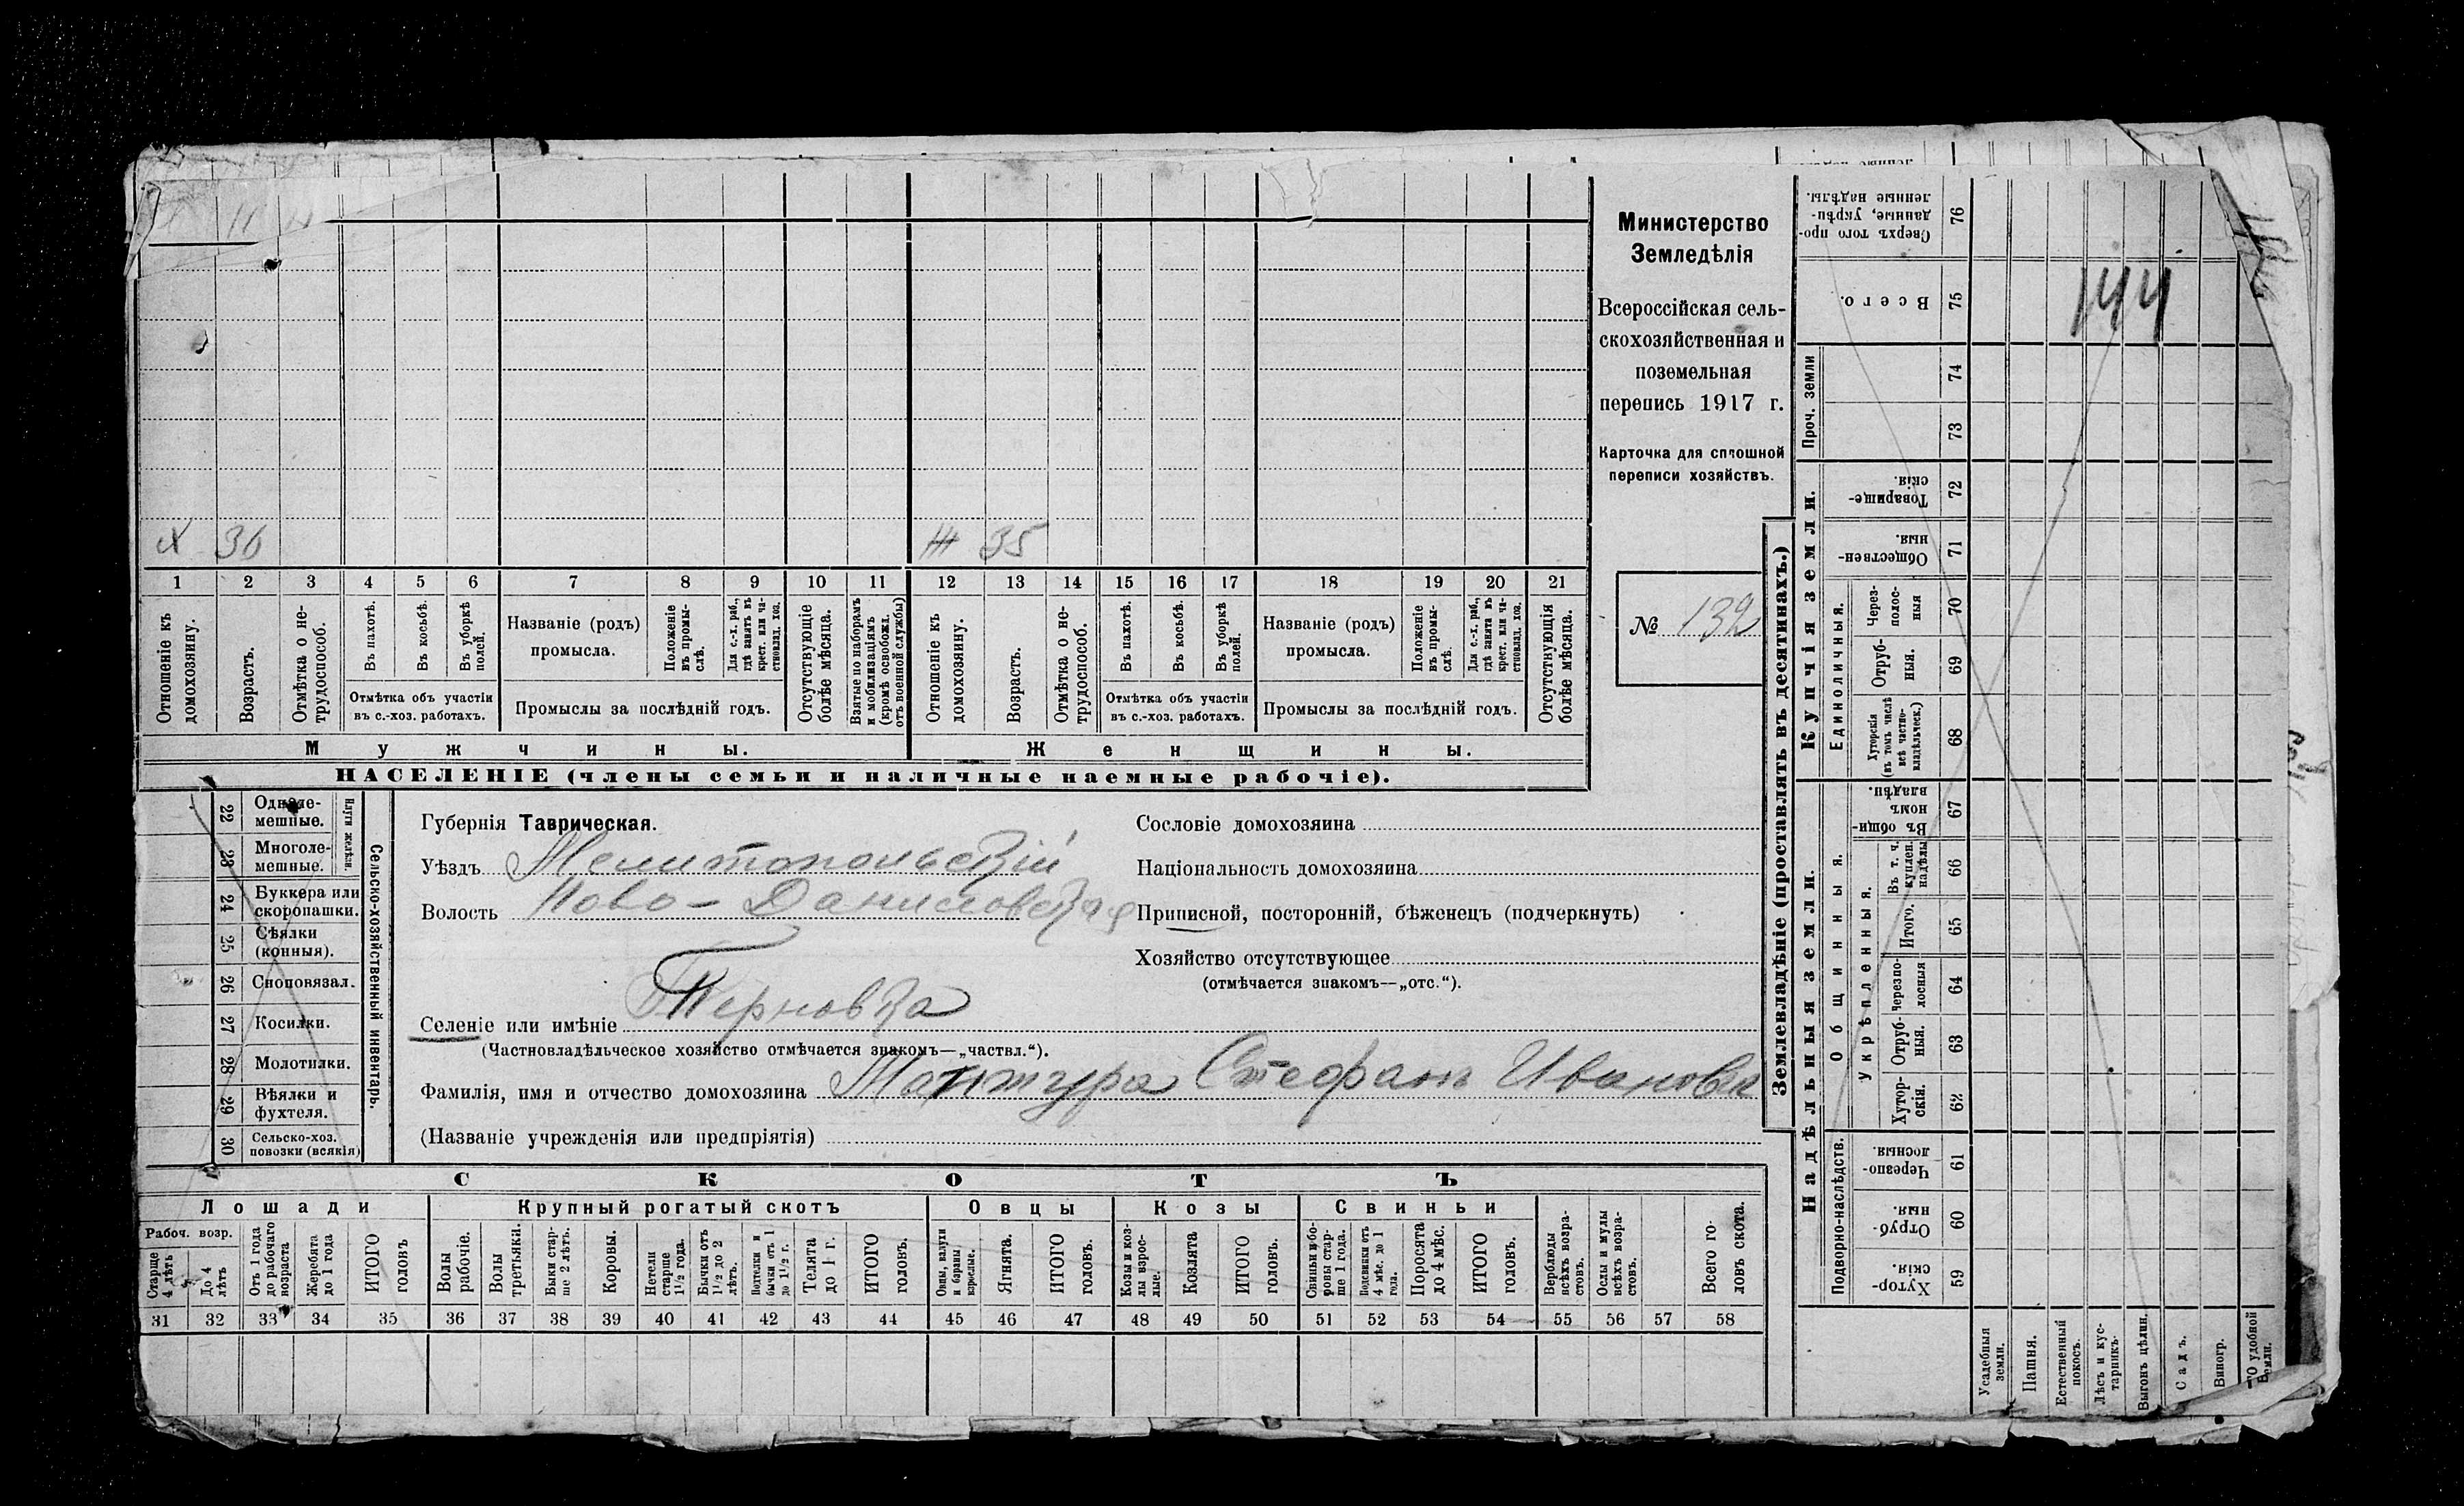 Министерство
Земледѣлія
Всероссійская сель-
скохозяйственная и
поземельная
перепись 1917 г.
Карточка для сплошной
переписи хозяйствъ.
№ 132
Х 36
Ж 35
1 2 3 4 5 6 7 8 9 10 11 12 13 14 15 16 17 18 19 20 21
Отношеніе къ домохозяину.
Возрастъ.
Отмѣтка о не-
трудоспособ.
Въ пахотѣ.
Въ косьбѣ.
Въ уборкѣ полей.
Отмѣтка объ участіи
въ с.-хоз. работахъ.
Названіе (родъ)
промысла.
Положеніе
въ промы-
слѣ.
Для с.-х. раб.,
гдѣ занятъ въ
крест. или ча-
стновлад. хоз.
Промыслы за послѣдній годъ.
Отсутствующіе
болѣе мѣсяца.
Взятые по наборамъ
и мобилизаціямъ
(кромѣ освобожд.
отъ военной службы)
Отношеніе къ
домохозяину.
Возрастъ.
Отмѣтка о не-
трудоспособ.
Въ пахотѣ.
Въ косьбѣ.
Въ уборкѣ
полей.
Отмѣтка объ участіи
въ с.-хоз. работахъ.
Названіе (родъ)
промысла.
Положеніе
въ промы-
слѣ.
Для с.-х. раб.,
гдѣ занята въ
крест. или ча-
стновлад. хоз.
Промыслы за послѣдній годъ.
Отсутствующія
болѣе мѣсяца.
Мужчины.
Женщины.
НАСЕЛЕНІЕ (члены семьи и наличные наемные рабочіе).
22 Одноле-
мешные.
23 Многоле-
мешные.
24 Буккера или
скоропашки.
25 Сѣялки
(конныя).
26 Сноповязал.
27 Косилки.
28 Молотилки.
29 Вѣялки и
фухтеля.
30 Сельско-хоз.
повозки (всякія)
Сельско-хозяйственный инвентарь.
Губернія Таврическая.
Уѣздъ Мелитопольскій
Волость Ново-Даниловская
Селеніе или имѣніе Терновка
(Частновладѣльческое хозяйство отмѣчается знакомъ—„частвл.“).
Фамилія, имя и отчество домохозяина Мантура Стефанъ Ивановъ
(Названіе учрежденія или предпріятія)
Сословіе домохозяина
Національность домохозяина
Приписной, посторонній, бѣженецъ (подчеркнуть)
Хозяйство отсутствующее
(отмѣчается знакомъ—„отс.“).
СКОТЪ
Лошади
Крупный рогатый скотъ
Овцы
Козы
Свиньи
Рабоч. возр.
Старше
4 лѣтъ
До 4
лѣтъ
Отъ 1 года
до рабочаго
возраста
Жеребята
до 1 года
ИТОГО
головъ
Волы
рабочіе.
Волы
третьяки.
Быки стар-
ше 2 лѣтъ.
Коровы.
Нетели
старше
1½ года.
Бычки отъ
1½ до 2
лѣтъ.
Подтелки и
бычки отъ 1
до 1½ г.
Телята
до 1 г.
ИТОГО
головъ.
Овцы, валухи
и бараны
взрослые.
Ягнята.
ИТОГО
головъ.
Козы и коз-
лы взрос-
лые.
Козлята
ИТОГО
головъ.
Свиньи и бо-
ровы стар-
ше 1 года.
Подсвинки отъ
4 мѣс. до 1
года.
Поросята
до 4 мѣс.
ИТОГО
головъ.
Верблюды
всѣхъ возра-
стовъ.
Ослы и мулы
всѣхъ возра-
стовъ.
Всего го-
ловъ скота.
31 32 33 34 35 36 37 38 39 40 41 42 43 44 45 46 47 48 49 50 51 52 53 54 55 56 57 58
Землевладѣніе (проставлять въ десятинахъ.)
Надѣльныя земли.
Купчія земли.
Проч. земли
Подворно-наслѣдств.
Общинныя.
Укрѣпленныя.
Единоличныя.
Сверхъ того про-
данные, укрѣп-
ленные надѣлы. 76
Всего. 75
74
73
Товарище-
скія. 72
Обществен-
ныя. 71
Через-
полос-
ныя 70
Отруб-
ныя. 69
Хуторскія
(въ томъ числѣ
всѣ частно-
владѣльческ.) 68
Въ общин-
номъ
владѣн. 67
Въ т. ч.
куплен.
надѣлы 66
Итого. 65
Черезпо-
лосныя 64
Отруб-
ныя. 63
Хутор-
скія. 62
Черезпо-
лосныя. 61
Отруб-
ныя. 60
Хутор-
скія. 59
Усадебныя
земли.
Пашня.
Естественный
покосъ.
Лѣсъ и кус-
тарникъ.
Выгонъ цѣлин.
Садъ.
Виногр.
удобной
земли.
144